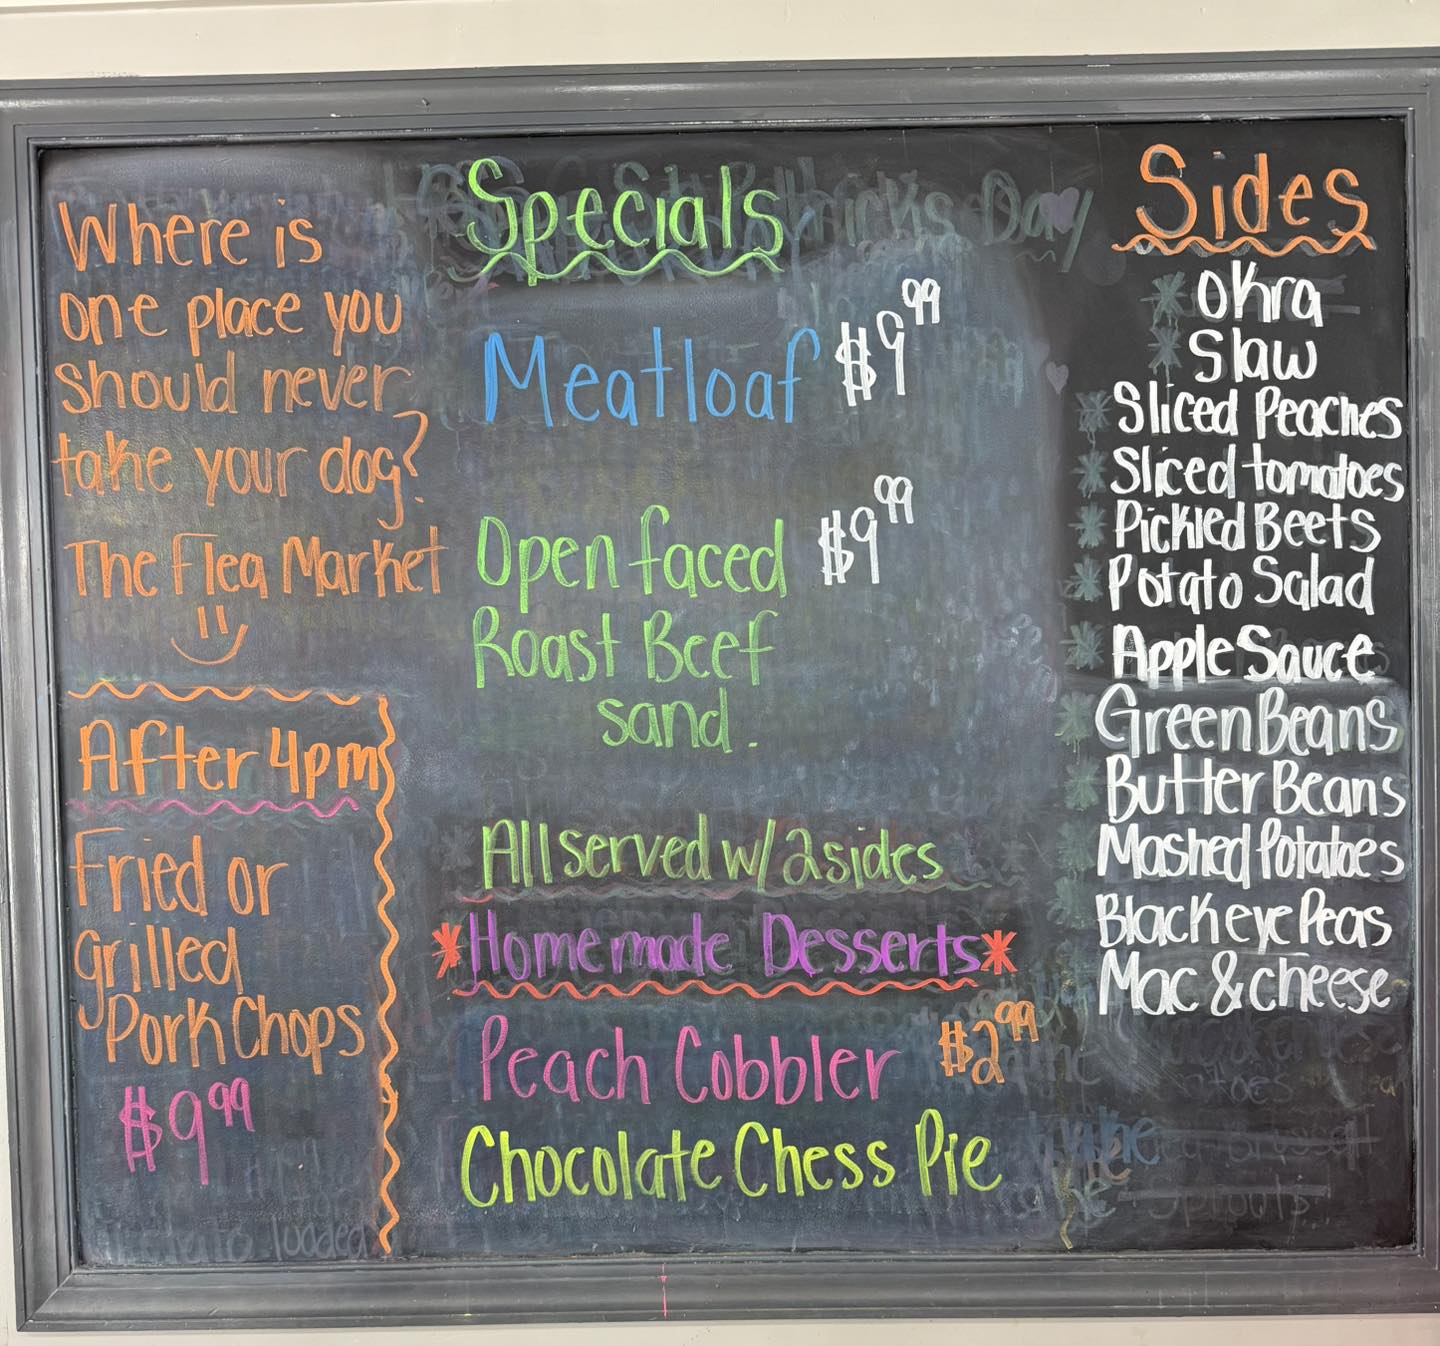 Where is
one place you
should never
take your dog?
The Flea Market
After 4pm
Fried or
grilled
Pork Chops
$9.99
Specials
Meatloaf $9.99
Open faced $9.99
Roast Beef
sand.
All served w/ 2 sides
*Homemade Desserts*
Peach Cobbler $2.99
Chocolate Chess Pie
Sides
* Okra
* Slaw
* Sliced Peaches
* Sliced tomatoes
* Pickled Beets
* Potato Salad
* Apple Sauce
* Green Beans
* Butter Beans
* Mashed Potatoes
* Blackeye Peas
Mac & cheese